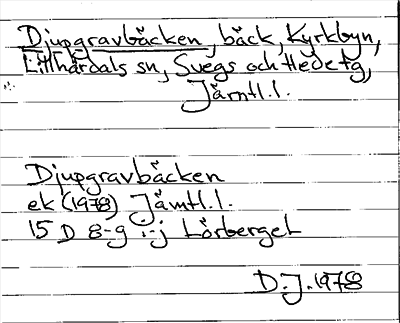 Djupgravbäcken, bäck, Kyrkbyn,
Lillhärdals sn, Svegs och Hede tg,
Jämtl.l.
Djupgravbäcken
ek (1978) Jämtl.l.
15 D 8-g i-j Lörberget
D.J. 1978